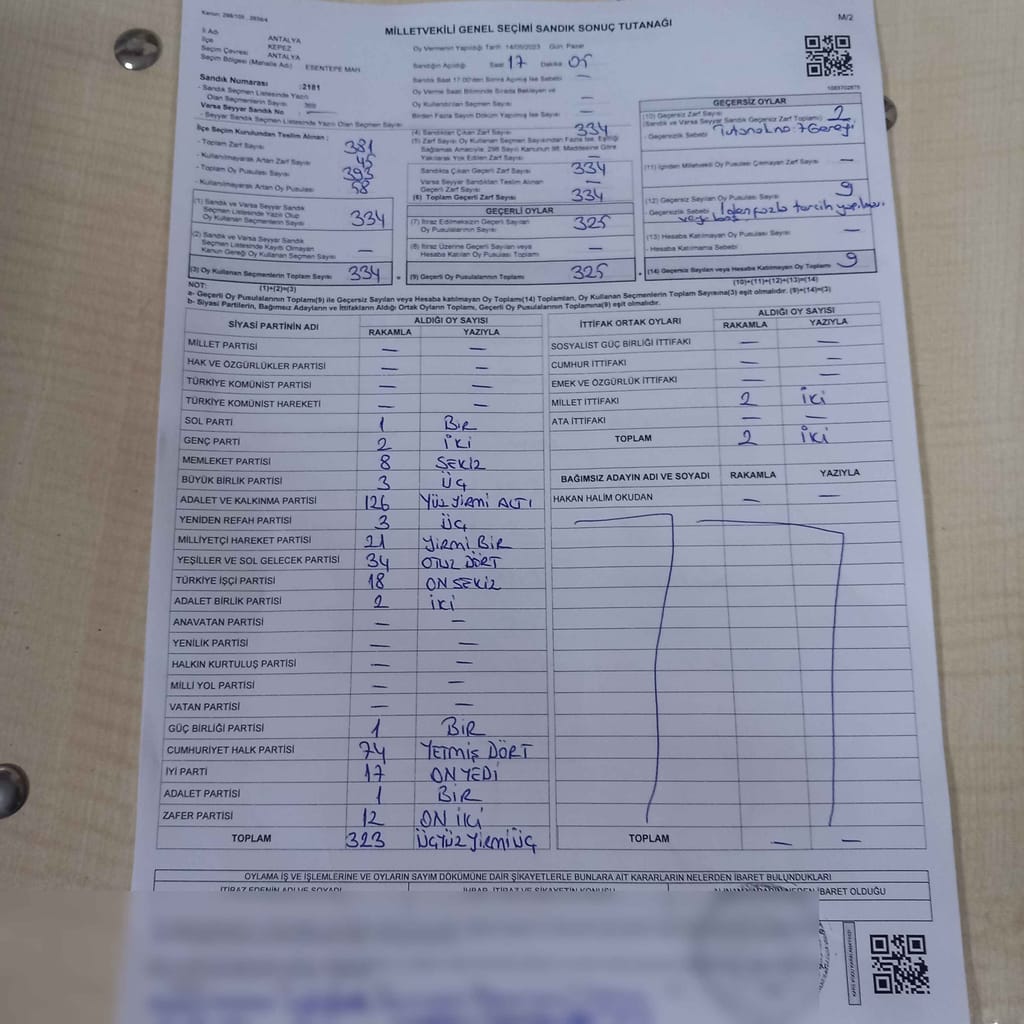 Kanun: 298/105 , 2839/4
MİLLETVEKİLİ GENEL SEÇİMİ SANDIK SONUÇ TUTANAĞI
M/2
İl Adı ANTALYA
İlçe KEPEZ
Seçim Çevresi ANTALYA
Seçim Bölgesi (Mahalle Ad.) ESENTEPE MAH
Oy Vermenin Yapıldığı Tarih 14/05/2023 Gün Pazar
Sandığın Açıldığı Saat 17 Dakika 05
Sandık Saat 17:00'den Sonra Açılmış İse Sebebi —
Oy Verme Saati Bitiminde Sırada Bekleyen ve
Oy Kullandırılan Seçmen Sayısı —
Birden Fazla Sayım Döküm Yapılmış İse Sayısı —
Sandık Numarası :2181
- Sandık Seçmen Listesinde Yazılı
Olan Seçmenlerin Sayısı
Varsa Seyyar Sandık No —
- Seyyar Sandık Seçmen Listesinde Yazılı Olan Seçmen Sayısı
İlçe Seçim Kurulundan Teslim Alınan :
- Toplam Zarf Sayısı 381
- Kullanılmayarak Artan Zarf Sayısı 45
- Toplam Oy Pusulası Sayısı 393
- Kullanılmayarak Artan Oy Pusulası 58
(1) Sandık ve Varsa Seyyar Sandık
Seçmen Listesinde Yazılı Olup
Oy Kullanan Seçmenlerin Sayısı 334
(2) Sandık ve Varsa Seyyar Sandık
Seçmen Listesinde Kaydı Olmayan
Kanun Gereği Oy Kullanan Seçmen Sayısı —
(3) Oy Kullanan Seçmenlerin Toplam Sayısı 334
(1)+(2)=(3)
(4) Sandıktan Çıkan Zarf Sayısı 334
(5) Zarf Sayısı Oy Kullanan Seçmen Sayısından Fazla İse, Eşitliği
Sağlamak Amacıyla; 298 Sayılı Kanunun 98. Maddesine Göre
Yakılarak Yok Edilen Zarf Sayısı —
Sandıkta Çıkan Geçerli Zarf Sayısı 334
Varsa Seyyar Sandıktan Teslim Alınan
Geçerli Zarf Sayısı —
(6) Toplam Geçerli Zarf Sayısı 334
GEÇERLİ OYLAR
(7) İtiraz Edilmeksizin Geçerli Sayılan
Oy Pusulalarının Sayısı 325
(8) İtiraz Üzerine Geçerli Sayılan veya
Hesaba Katılan Oy Pusulası Sayısı —
(9) Geçerli Oy Pusulalarının Toplamı 325
GEÇERSİZ OYLAR
(10) Geçersiz Zarf Sayısı
(Sandık ve Varsa Seyyar Sandık Geçersiz Zarf Toplamı) 2
- Geçersizlik Sebebi Tutanak no: 7 Gereği
(11) İçinden Milletvekili Oy Pusulası Çıkmayan Zarf Sayısı —
(12) Geçersiz Sayılan Oy Pusulası Sayısı 9
- Geçersizlik Sebebi 1 den fazla tercih yapılması
veya boş
(13) Hesaba Katılmayan Oy Pusulası Sayısı —
- Hesaba Katılmama Sebebi
(14) Geçersiz Sayılan veya Hesaba Katılmayan Oy Toplamı 9
(10)+(11)+(12)+(13)=(14)
NOT:
a- Geçerli Oy Pusulalarının Toplamı(9) ile Geçersiz Sayılan veya Hesaba katılmayan Oy Toplamı(14) Toplamları, Oy Kullanan Seçmenlerin Toplam Sayısına(3) eşit olmalıdır. (9)+(14)=(3)
b- Siyasi Partilerin, Bağımsız Adayların ve İttifakların Aldığı Ortak Oyların Toplamı, Geçerli Oy Pusulalarının Toplamına(9) eşit olmalıdır.
SİYASİ PARTİNİN ADI ALDIĞI OY SAYISI
RAKAMLA YAZIYLA
MİLLET PARTİSİ — —
HAK VE ÖZGÜRLÜKLER PARTİSİ — —
TÜRKİYE KOMÜNİST PARTİSİ — —
TÜRKİYE KOMÜNİST HAREKETİ — —
SOL PARTİ 1 BİR
GENÇ PARTİ 2 İKİ
MEMLEKET PARTİSİ 8 SEKİZ
BÜYÜK BİRLİK PARTİSİ 3 ÜÇ
ADALET VE KALKINMA PARTİSİ 126 YÜZ YİRMİ ALTI
YENİDEN REFAH PARTİSİ 3 ÜÇ
MİLLİYETÇİ HAREKET PARTİSİ 21 YİRMİ BİR
YEŞİLLER VE SOL GELECEK PARTİSİ 34 OTUZ DÖRT
TÜRKİYE İŞÇİ PARTİSİ 18 ON SEKİZ
ADALET BİRLİK PARTİSİ 2 İKİ
ANAVATAN PARTİSİ — —
YENİLİK PARTİSİ — —
HALKIN KURTULUŞ PARTİSİ — —
MİLLİ YOL PARTİSİ — —
VATAN PARTİSİ — —
GÜÇ BİRLİĞİ PARTİSİ 1 BİR
CUMHURİYET HALK PARTİSİ 74 YETMİŞ DÖRT
İYİ PARTİ 17 ON YEDİ
ADALET PARTİSİ 1 BİR
ZAFER PARTİSİ 12 ON İKİ
TOPLAM 323 ÜÇYÜZ YİRMİ ÜÇ
İTTİFAK ORTAK OYLARI ALDIĞI OY SAYISI
RAKAMLA YAZIYLA
SOSYALİST GÜÇ BİRLİĞİ İTTİFAKI — —
CUMHUR İTTİFAKI — —
EMEK VE ÖZGÜRLÜK İTTİFAKI — —
MİLLET İTTİFAKI 2 İKİ
ATA İTTİFAKI — —
TOPLAM 2 İKİ
BAĞIMSIZ ADAYIN ADI VE SOYADI RAKAMLA YAZIYLA
HAKAN HALİM OKUDAN — —
TOPLAM — —
OYLAMA İŞ VE İŞLEMLERİNE VE OYLARIN SAYIM DÖKÜMÜNE DAİR ŞİKAYETLERLE BUNLARA AİT KARARLARIN NELERDEN İBARET BULUNDUKLARI
İTİRAZ EDENİN ADI VE SOYADI İHBAR, İTİRAZ VE ŞİKAYETİN KONUSU ALINAN KARARIN NEDEN İBARET OLDUĞU